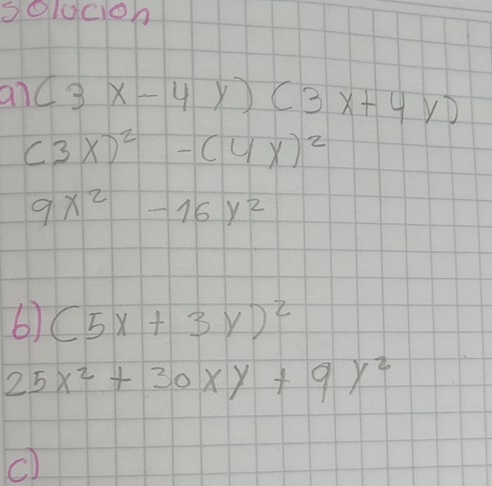 Solucion
a) (3x - 4y) (3x + 4y)
(3x)² - (4y)²
9x² - 16y²
b) (5x + 3y)²
25x² + 30xy + 9y²
c)